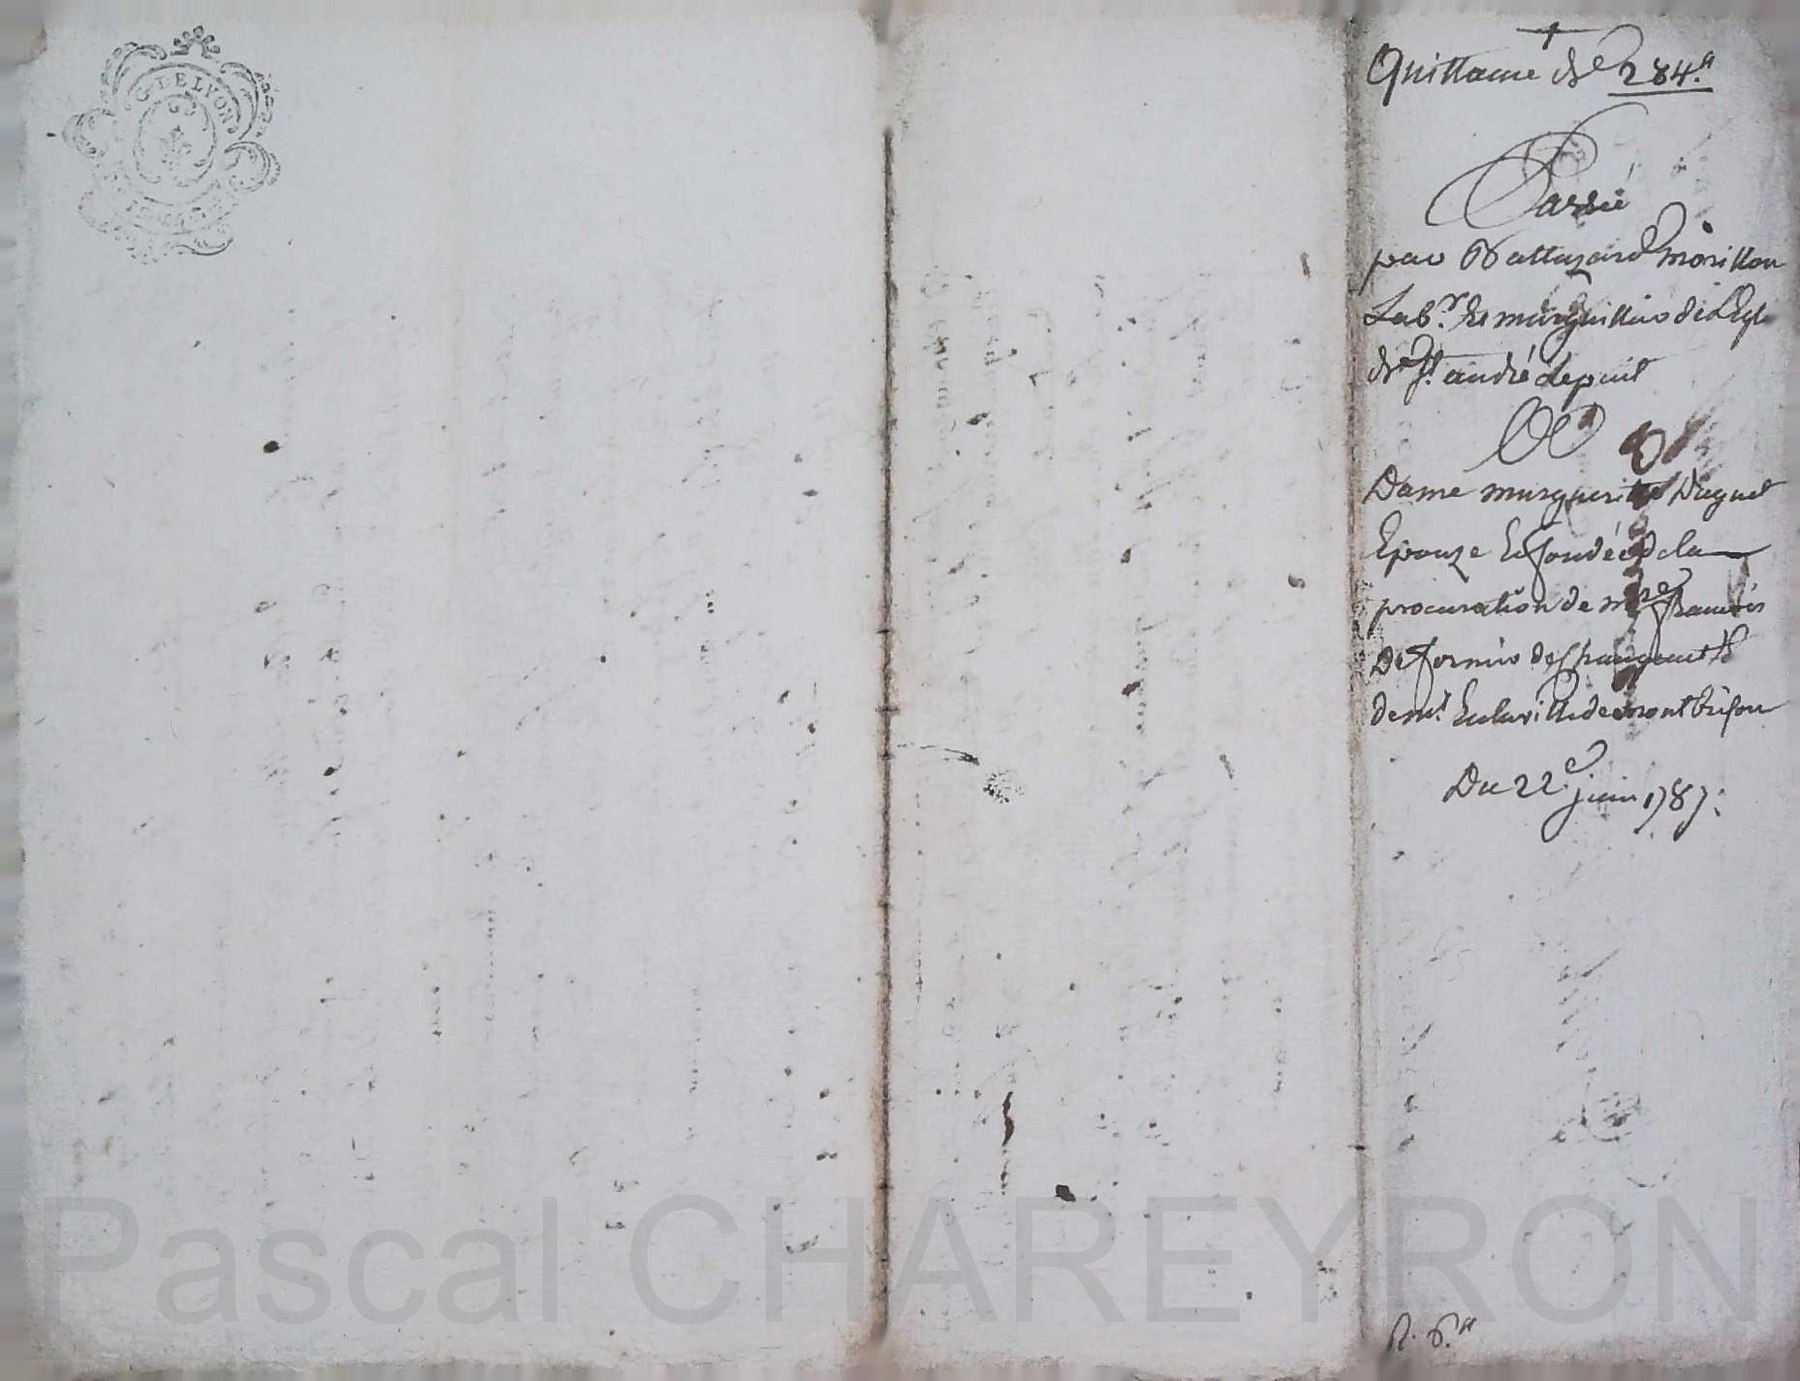 G. DE LYON
Quittance de 284.#
Passée
par Baltazard Morillon
Lab.r et marguillier de l'Egle
de St. andré le puit
A
Dame marguerite Duguet
Epouze et fondée de la
procuration de mre françois
de
de mt. de la ville de montbrison
Du 22e juin 1787.
R. 6.#
Pascal CHAREYRON